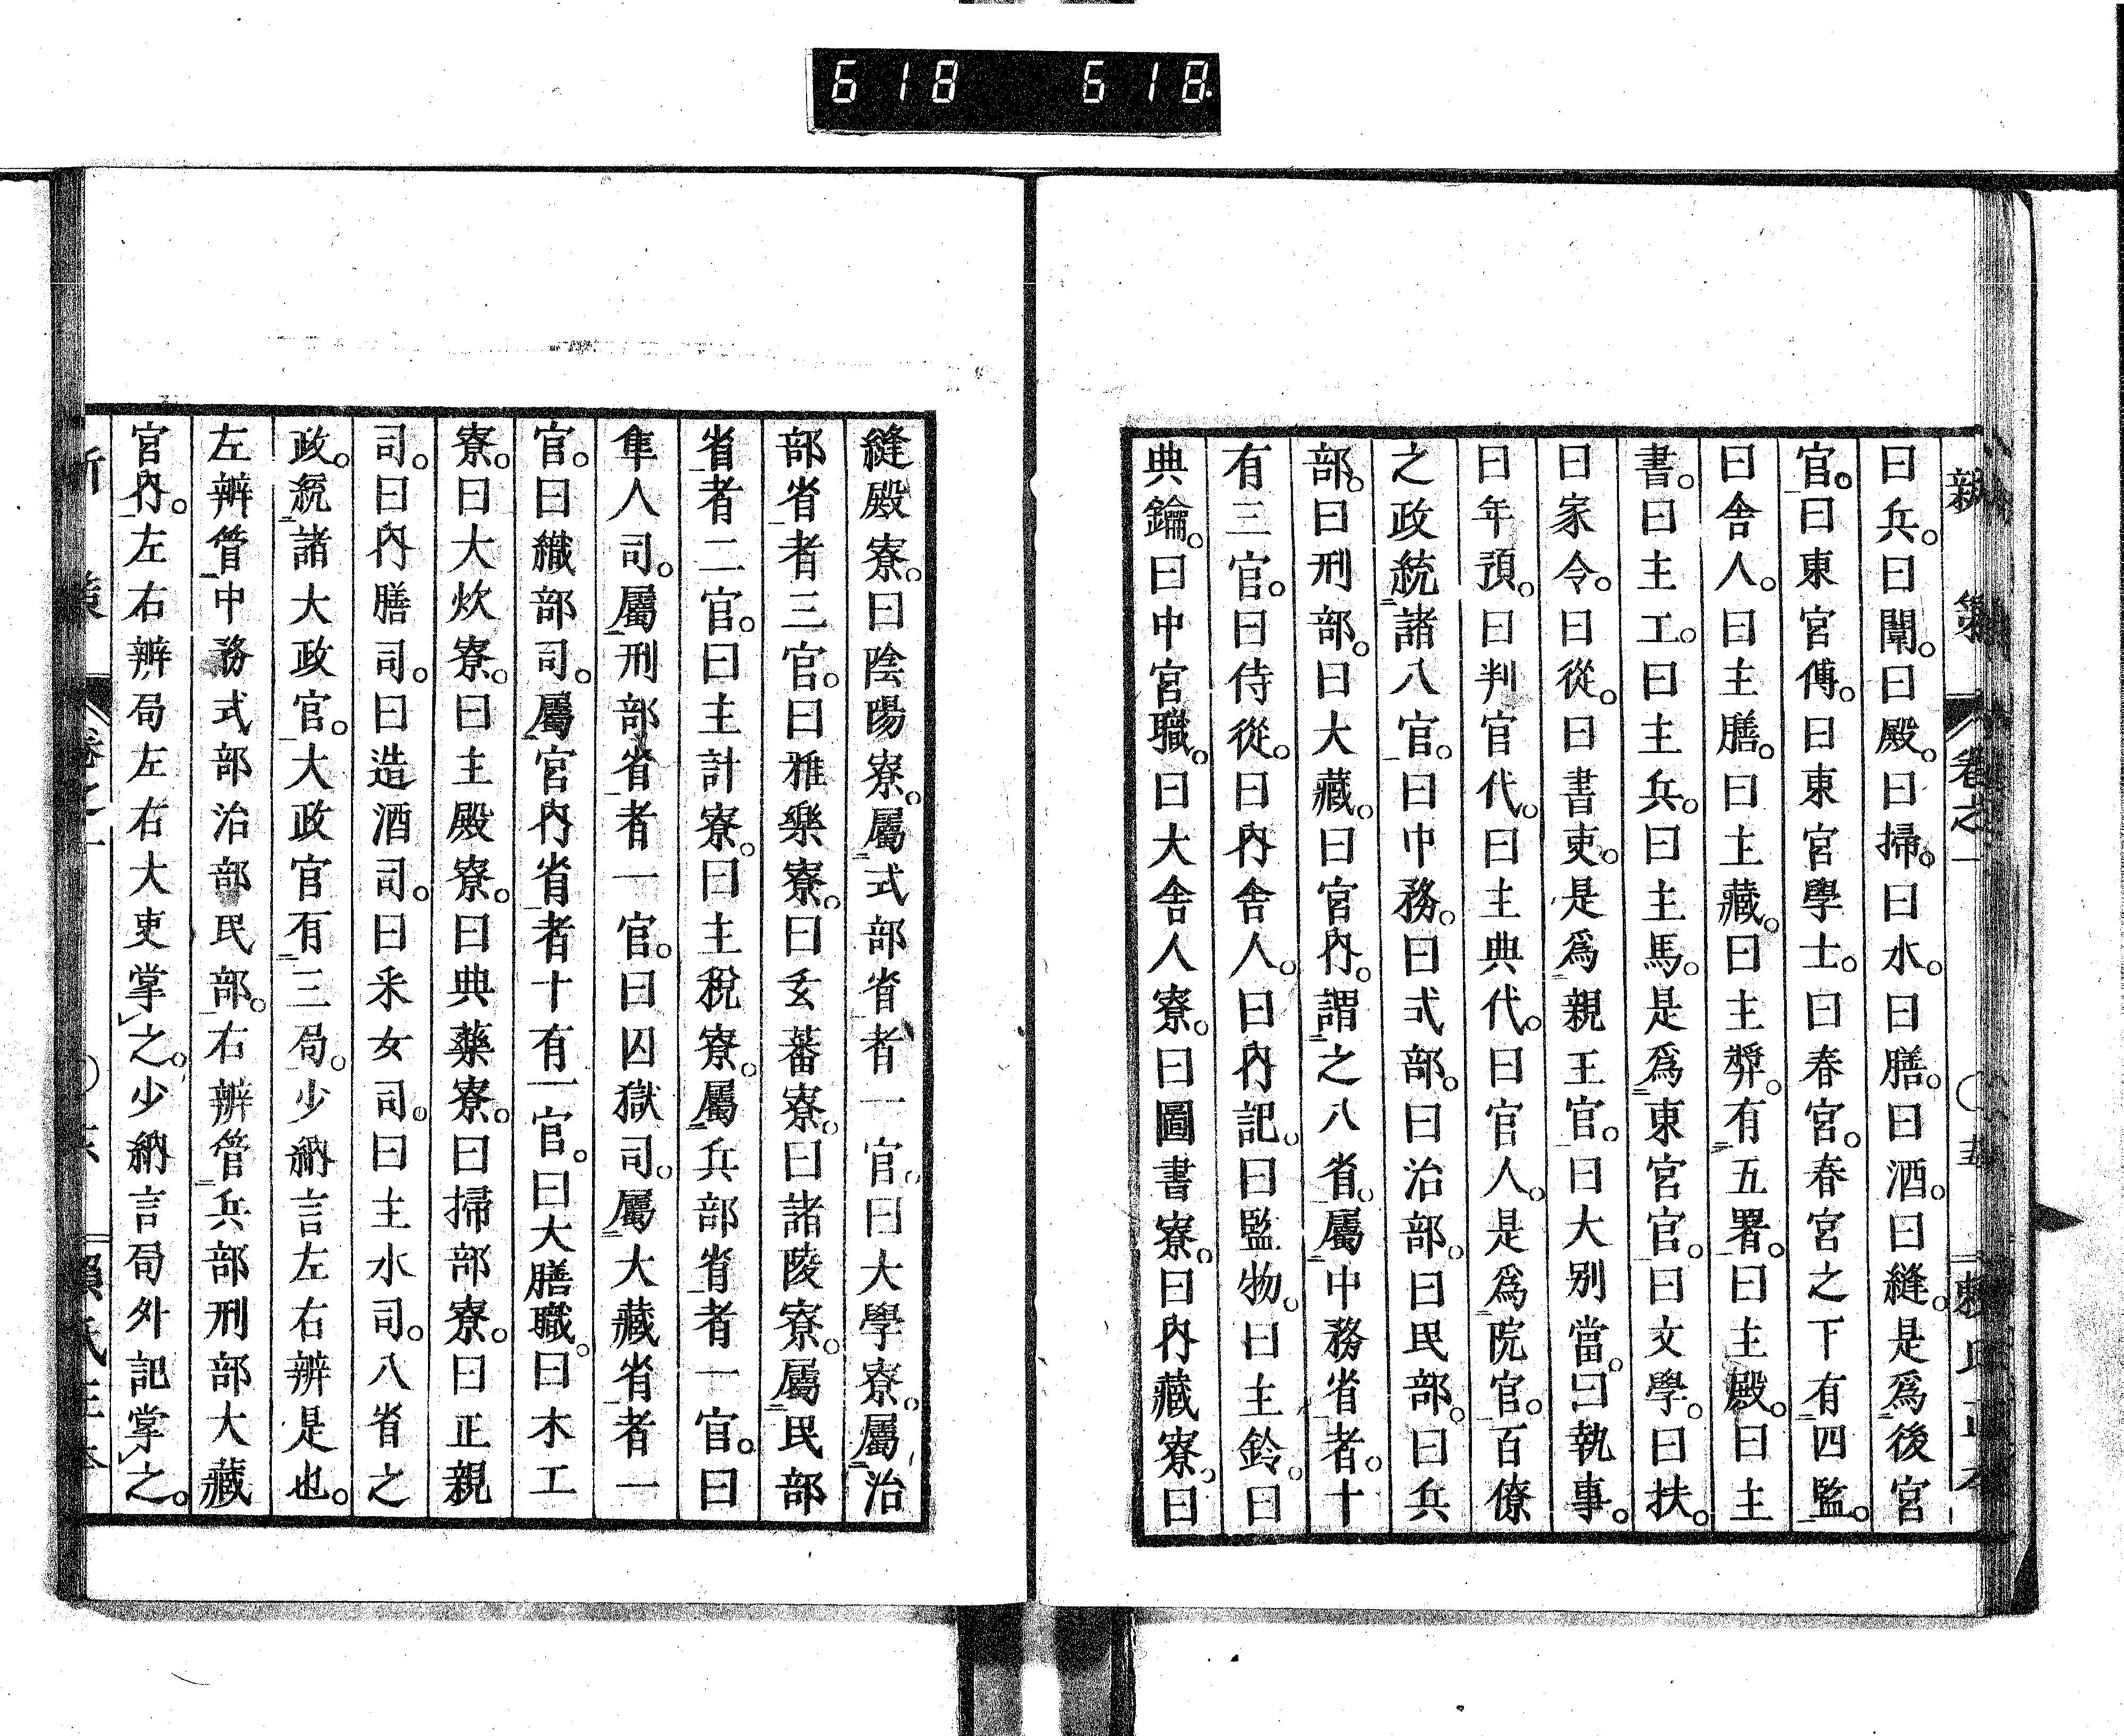 618 618.
新策 卷之一 ○五 賴氏正本
曰兵。曰闈。曰殿。曰掃。曰水。曰膳。曰酒。曰縫。是爲後宮
官。曰東宮傅。曰東宮學士。曰春宮。春宮之下有四監。
曰舍人。曰主膳。曰主藏。曰主漿。有五署。曰主殿。曰主
書。曰主工。曰主兵。曰主馬。是爲東宮官。曰文學。曰扶。
曰家令。曰從。曰書吏。是爲親王官。曰大別當。曰執事。
曰年預。曰判官代。曰主典代。曰官人。是爲院官。百僚
之政統諸八官。曰中務。曰式部。曰治部。曰民部。曰兵
部。曰刑部。曰大藏。曰宮內。謂之八省。屬中務省者。十
有三官。曰侍從。曰內舍人。曰內記。曰監物。曰主鈴。曰
典鑰。曰中宮職。曰大舍人寮。曰圖書寮。曰內藏寮。曰
縫殿寮。曰陰陽寮。屬式部省者一官。曰大學寮。屬治
部省者三官。曰雅樂寮。曰玄蕃寮。曰諸陵寮。屬民部
省者二官。曰主計寮。曰主稅寮。屬兵部省者一官。曰
隼人司。屬刑部省者一官。曰囚獄司。屬大藏省者一
官。曰織部司。屬宮內省者十有一官。曰大膳職。曰木工
寮。曰大炊寮。曰主殿寮。曰典藥寮。曰掃部寮。曰正親
司。曰內膳司。曰造酒司。曰采女司。曰主水司。八省之
政。統諸大政官。大政官有三局。少納言左右辨是也。
左辨管中務式部治部民部。右辨管兵部刑部大藏
宮內。左右辨局左右大吏掌之。少納言局外記掌之。